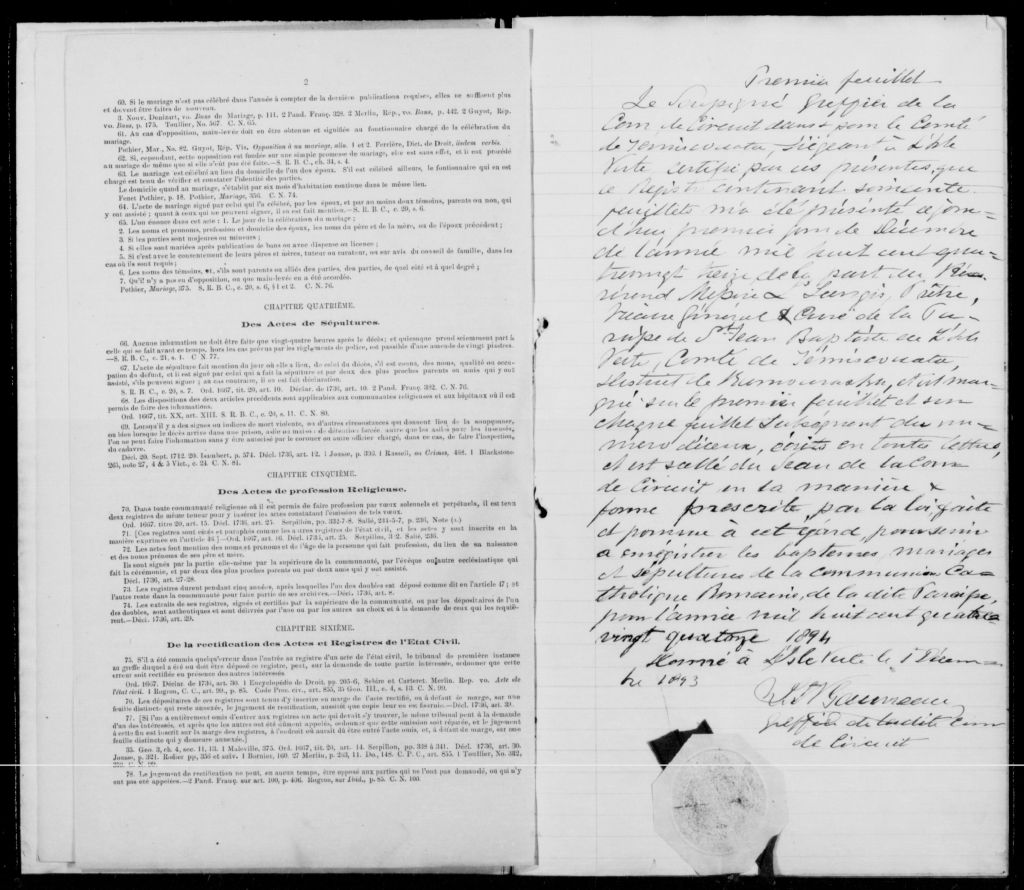 2
60. Si le mariage n'est pas célébré dans l'année à compter de la dernière publications requises, elles ne suffisent plus
et doivent être faites de nouveau.
3. Nouv. Denizart, vo. Bans de Mariage, p. 111. 2 Pand. Franç. 328. 2 Merlin, Rép., vo. Bans, p. 442. 2 Guyot, Rép.
vo. Bans, p. 175. Toullier, No. 567. C. N. 65.
61. Au cas d'opposition, main-levée doit en être obtenue et signifiée au fonctionnaire chargé de la célébration du
mariage.
Pothier, Mar., No. 82. Guyot, Rép. Vis. Opposition à un mariage, alin. 1 et 2. Ferrière, Dict. de Droit, iisdem verbis.
62. Si, cependant, cette opposition est fondée sur une simple promesse de mariage, elle est sans effet, et il est procédé
au mariage de même que si elle n'eût pas été faite.—S. R. B. C., ch. 34, s. 4.
63. Le mariage est célébré au lieu du domicile de l'un des époux. S'il est célébré ailleurs, le fontionnaire qui en est
chargé est tenu de vérifier et constater l'identité des parties.
Le domicile quand au mariage, s'établit par six mois d'habitation continue dans le même lieu.
Fenet Pothier, p. 18. Pothier, Mariage, 356. C. N. 74.
64. L'acte de mariage signé par celui qui l'a célébré, par les époux, et par au moins deux témoins, parents ou non, qui
y ont assisté ; quant à ceux qui ne peuvent signer, il en est fait mention.—S. R. B. C., c. 20, s. 6.
65. L'on énonce dans cet acte : 1. Le jour de la célébration du mariage ;
2. Les noms et prenoms, profession et domicile des époux, les noms du père et de la mère, ou de l'époux précédent ;
3. Si les parties sont majeures ou mineurs ;
4. Si elles sont mariées après publication de bans ou avec dispense ou licence ;
5. Si c'est avec le consentement de leurs pères et mères, tuteur ou curateur, ou sur avis du conseil de famille, dans les
cas où ils sont requis ;
6. Les noms des témoins, et, s'ils sont parents ou alliés des parties, des parties, de quel côté et à quel degré ;
7. Qu'il n'y a pas eu d'opposition, ou que main-levée en a été accordée.
Pothier, Mariage, 375. S. R. B. C., c. 20, s. 6, § 1 et 2. C. N. 76.
CHAPITRE QUATRIÈME.
Des Actes de Sépultures.
66. Aucune inhumation ne doit être faite que vingt-quatre heures après le décès; et quiconque prend sciemment part à
celle qui se fait avant ce temps, hors les cas prévus par les réglements de police, est passible d'une amende de vingt piastres.
—S. R. B. C., c. 21, s. 1. C. N. 77.
67. L'acte de sépulture fait mention du jour où elle a lieu, de celui du décès, s'il est connu, des noms, qualité ou occu-
pation du défunt, et il est signé par celui qui a fait la sépulture et par deux des plus proches parents ou amis qui y ont
assisté, s'ils peuvent signer ; au cas contraire, il en est fait déclaration.
S. R. B. C., c. 20, s. 7. Ord. 1667, tit. 20, art. 10. Déclar. de 1736, art. 10. 2 Pand. Franç. 382. C. N. 76.
68. Les dispositions des deux articles précédents sont applicables aux communautés religieuses et aux hôpitaux où il est
permis de faire des inhumations.
Ord. 1667, tit. XX, art. XIII. S. R. B. C., c. 20, s. 11. C. N. 80.
69. Lorsqu'il y a des signes ou indices de mort violente, ou d'autres circonstances qui donnent lieu de la soupçonner,
ou bien lorsque le décès arrive dans une prison, asile ou maison de détention forcée, autre que les asiles pour les insensés,
l'on ne peut faire l'inhumation sans y être autorisé par le coroner ou autre officier chargé, dans ce cas, de faire l'inspection,
du cadavre.
Décl. 20. Sept. 1712. 20. Isambert, p. 574. Décl. 1736, art. 12. 1 Jousse, p. 300. 1 Russell, on Crimes, 468. 1 Blackstone
263, note 27, 4 & 5 Vict., c. 24. C. N. 81.
CHAPITRE CINQUIÈME.
Des Actes de profession Religieuse.
70. Dans toute communauté religieuse où il est permis de faire profession par vœux solennels et perpétuels, il est tenu
deux registres de même teneur pour y insérer les actes constatant l'émission de tels vœux.
Ord. 1667. titre 20, art. 15. Décl. 1736, art. 25. Serpillon, pp. 332-7-8. Sallé, 234-5-7, p. 236, Note (c.)
71. [Ces registres sont cotés et paraphés comme les autres registres de l'état civil, et les actes y sont inscrits en la
manière exprimée en l'article 46.]—Ord. 1667, art. 16. Décl. 1736, art. 25. Serpillon, 332. Sallé, 236.
72. Les actes font mention des noms, et prenoms et de l'âge de la personne qui fait profession, du lieu de sa naissance
et des noms prénoms de ses père et mère.
Ils sont signés par la partie elle-même par la supérieure de la communauté, par l'évêque ou autre ecclésiastique qui
fait la cérémonie, et par deux des plus proches parents ou par deux amis qui y ont assisté.
Décl. 1736, art. 27-28.
73. Les registres durent pendant cinq années, après lesquelles l'un des doubles est déposé comme dit en l'article 47 ; et
l'autre reste dans la communauté pour faire partie de ses archives.—Décl. 1736, art. 8.
74. Les extraits de ses registres, signés et certifiés par la supérieure de la communauté, ou par les dépositaires de l'un
des doubles, sont authentiques et sont délivrés par l'une ou par les autres au choix et à la demande de ceux qui les requiè-
rent.—Décl. 1736, art. 29.
CHAPITRE SIXIÈME.
De la rectification des Actes et Registres de l'Etat Civil.
75. S'il a été commis quelqu'erreur dans l'entrée au registre d'un acte de l'état civil, le tribunal de première instance
au greffe duquel a été ou doit être déposé ce registre, peut, sur la demande de toute partie interéssée, ordonner que cette
erreur soit rectifiée en présence des autres intéressés
Ord. 1667. Déclar. de 1736, art. 30. 1 Encyclopédie de Droit, pp. 205-6, Sebire et Carteret. Merlin. Rep. vo. Acte de
l'état civil. 1 Rogron, C. C., art. 99, p. 85. Code Proc. civ., art. 855, 35 Geo. III., c. 4, s. 13. C. N. 99.
76. Les dépositaires de ces registres sont tenus d'y inscrire en marge de l'acte rectifié, ou à défaut de marge, sur une
feuille distincte qui reste annexée, le jugement de rectification, aussitôt que copie leur en est fournie.—Décl. 1736, art. 30.
77. [Si l'on a entièrement omis d'entrer aux registres un acte qui devait s'y trouver, le même tribunal peut à la demande
d'un des intéressés, et après que les autres ont été dûment appelés, ordonner que cette omission soit réparée, et le jugement
à cette fin est inscrit sur la marge des registres, à l'endroit où aurait dû être entré l'acte omis, et, à défaut de marge, sur une
feuille distincte qui y demeure annexée.]
35. Geo. 3, ch. 4, sec. 11, 13. 1 Maleville, 375. Ord. 1667, tit. 20, art. 14. Serpillon, pp. 338 à 341. Décl. 1736, art. 30.
Jousse, p. 321. Rodier pp, 356 et suiv. 1 Bornier, 160. 27 Merlin, p. 233, 11. Do., 148. C. P. C., art. 855. 1 Toullier, No. 352,
C. N. 99.
78. Le jugement de rectification ne peut, en aucun temps, être opposé aux parties qui ne l'ont pas demandé, ou qui n'y
ont pas été appelées.—2 Pand. Franç. sur art. 100, p. 406. Rogron, sur Ibid., p. 85. C. N. 100.
Premier feuillet
Le Soussigné Greffier de la
Cour de Circuit dans & pour le Comté
de Témiscouata, Siégeant à L'Isle
Verte certifie par ces présentes, que
ce Registre contenant soixante
feuillets m'a été présenté ce jour-
d'hui premier jour de Décembre
de l'année mil huit cent qua-
trevingt treize de la part du Rév
érend Messire L. Langis, Prêtre,
Vicaire Général & Curé de la Pa-
roisse de St Jean Baptiste de L'Isle
Verte, Comté de Témiscouata,
District de Kamouraska, et est mar-
qué sur le premier feuillet et sur
chaque feuillet Subséquent du nu-
méro d'iceux, écrits en toutes lettres,
et est scellé du Sceau de la Cour
de Circuit en la manière &
forme prescrite par la loi faite
et pourvue à cet égard, pour servir
à enregistrer les baptêmes, mariages
et sépultures de la communion Ca-
tholique Romaine, de la dite Paroisse,
pour l'année mil huit cent quatre
vingt quatorze 1894
Donné à L'Isle Verte le 1 Décem-
bre 1893
greffier de ladite Cour
de Circuit